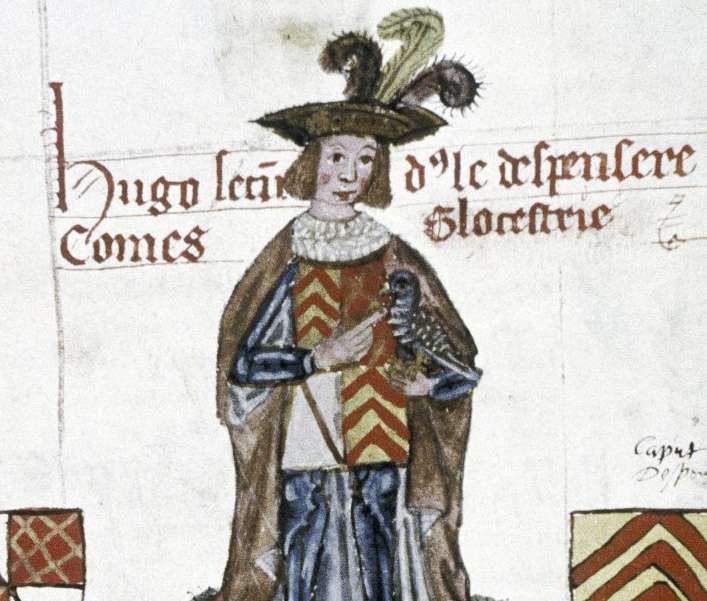 Hugo secu dꝰ le despensere
Comes Glocestrie
Caput